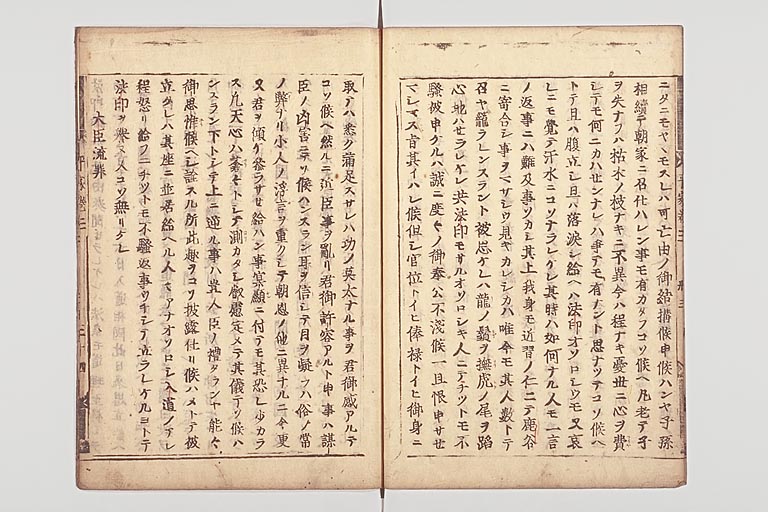 ニタニモヤヽモスレハ可亡由ノ御結構候申候ハンヤ子孫
相續テ朝家ニ召仕ハレン事モ有カタフコソ候ヘ凡老テ子
ヲ失ナフハ枯木ノ枝ナキニ不異今ハ程ナキ憂世ニ心ヲ費
シテモ何ニカハセンナレハ爭テモ有ナント思ナツテコソ候ヘ
トテ且ハ腹立シ且ハ落淚シ給ヘハ法印オソロシウモ又哀
レニモ覺テ汗水ニコソナラレケレ其時ハ如何ナル人モ一言
ノ返事ニハ難及事ソカシ其上我身モ近習ノ仁ニテ鹿谷
ニ寄合シ事ヲマサシウ見キカレシカハ唯今モ其人數トテ
召ヤ籠ラレンスラント被思ケレハ龍ノ鬚ヲ撫虎ノ尾ヲ蹈
心地ハセラレケレ共法印モサルオソロシキ人ニテチツトモ不
騷被申ケルハ誠ニ度々ノ御奉公不淺候一旦恨申サセ
マシマス旨其イハレ候但シ官位トイヒ俸祿トイヒ御身ニ
取テハ悉ク滿足スサレハ功ノ莫太ナル事ヲ君御感アルテ
コソ候ヘ然ルニ近臣事ヲ亂リ君御許容アルト申事ハ謀
臣ノ凶害ニテソ候ハンスラン耳ヲ信シテ目ヲ疑フハ俗ノ常
ノ弊ナリ小人ノ浮言ヲ重クシテ朝恩ノ他ニ異ナルニ今更
又君ヲ傾ケ參ラサセ給ハン事冥顯ニ付テモ其恐レ少カラ
ス凡天心ハ蒼々トシテ測カタシ叡慮定メテ其儀テソ候ハ
ンスラン下トシテ上ニ逆ル事ハ豈人臣ノ禮タランヤ能々
御思惟候ヘシ詮スル所此趣ヲコソ披露仕リ候ハメトテ被
立ケレハ其座ニ並居給ヘル人々アナオソロシ入道ノアレ
程怒リ給フニチツトモ不騷返事ウチシテ立ラレケルヨトテ
法印ヲ譽ヌ人コソ無リケレ
大臣流罪